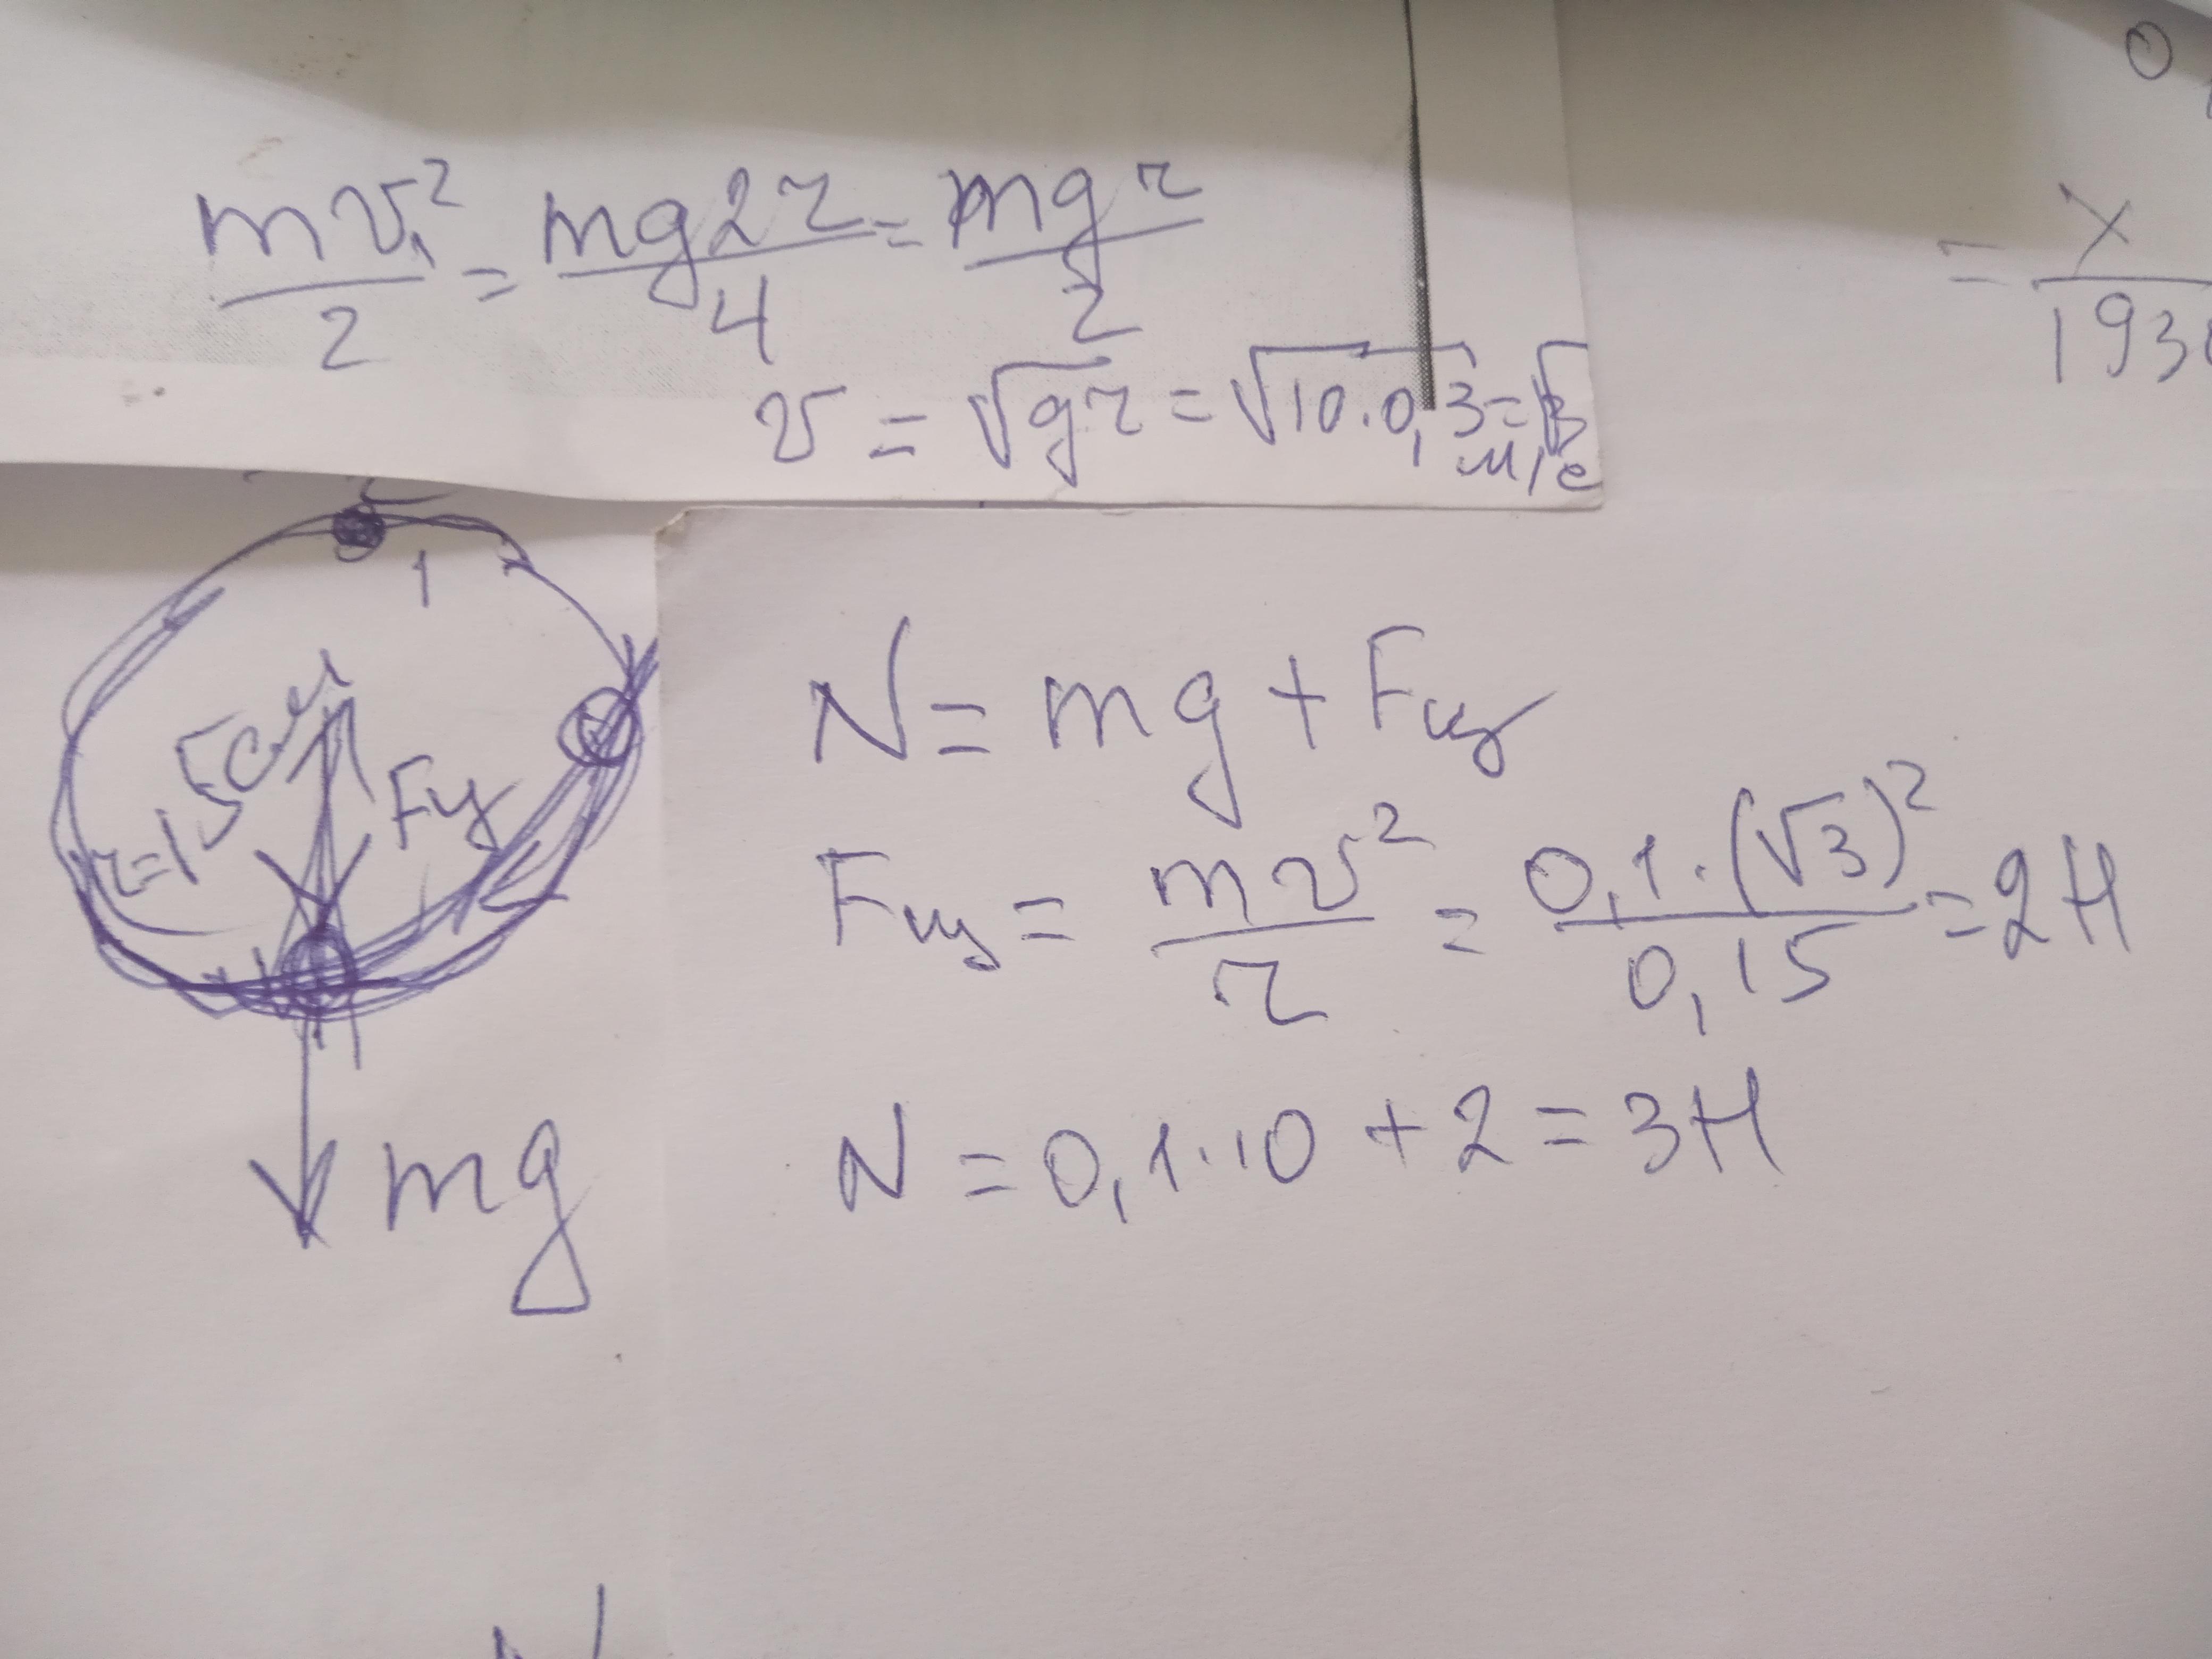 mv₁²/2 = mg2r/4 = mgr/2
v = √gr = √10·0,3 = √3 м/с
= x/193
1
r=15см
Fц
mg
N = mg + Fцу
Fцу = mv²/r = 0,1·(√3)²/0,15 = 2Н
N = 0,1·10 + 2 = 3Н
N